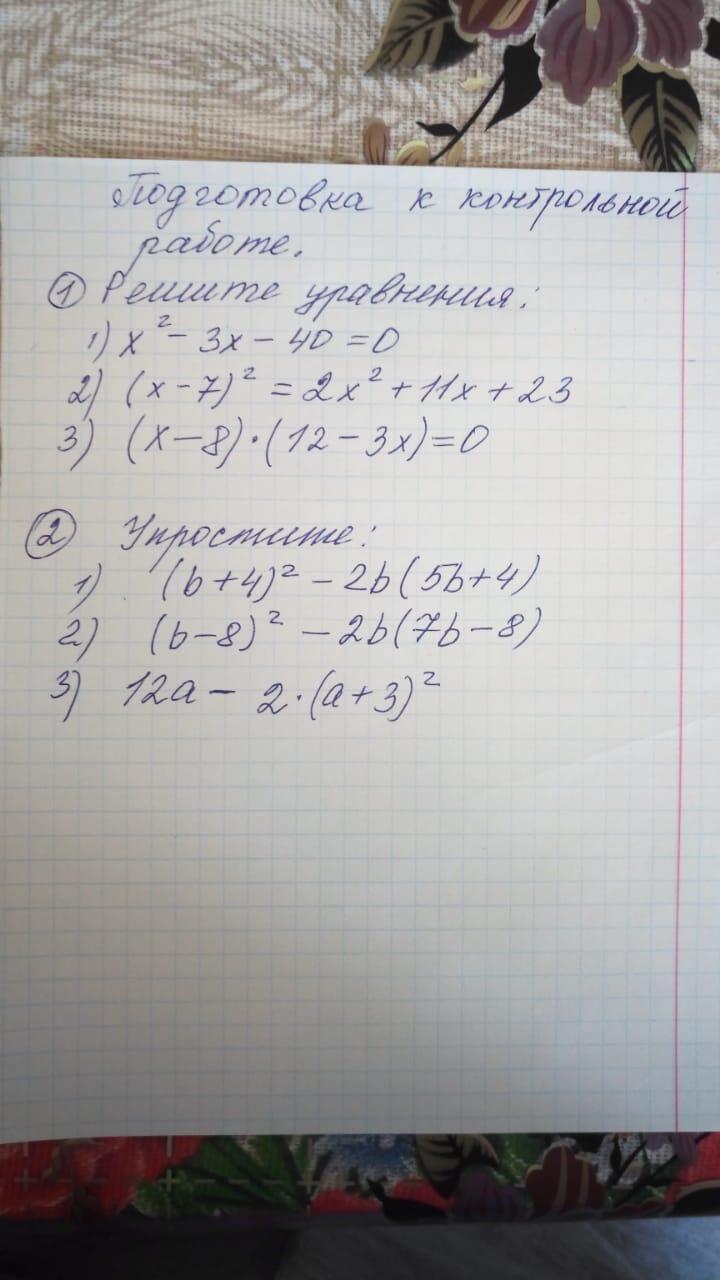 Подготовка к контрольной
работе.
① Решите уравнения:
1) x² - 3x - 40 = 0
2) (x-7)² = 2x² + 11x + 23
3) (x-8)·(12-3x)=0
② Упростите:
1) (b+4)² - 2b(5b+4)
2) (b-8)² - 2b(7b-8)
3) 12a - 2·(a+3)²